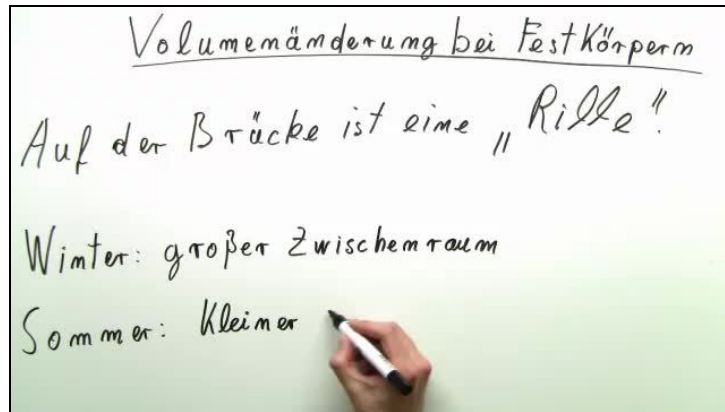 Volumenänderung bei Festkörpern
Auf der Brücke ist eine „Rille".
Winter: großer Zwischenraum
Sommer: Kleiner